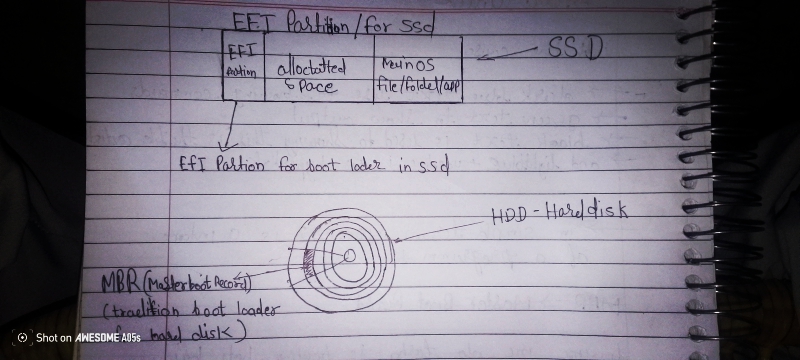 EFI Partition/for SSd
EFI
Partion
alloctatted
space
Main OS
file/folder/app
SSD
EFI Partion for boot loder in ssd
HDD - Harddisk
MBR (Master boot Record)
(tradition boot loader
for hard disk)
Shot on AWESOME A05s